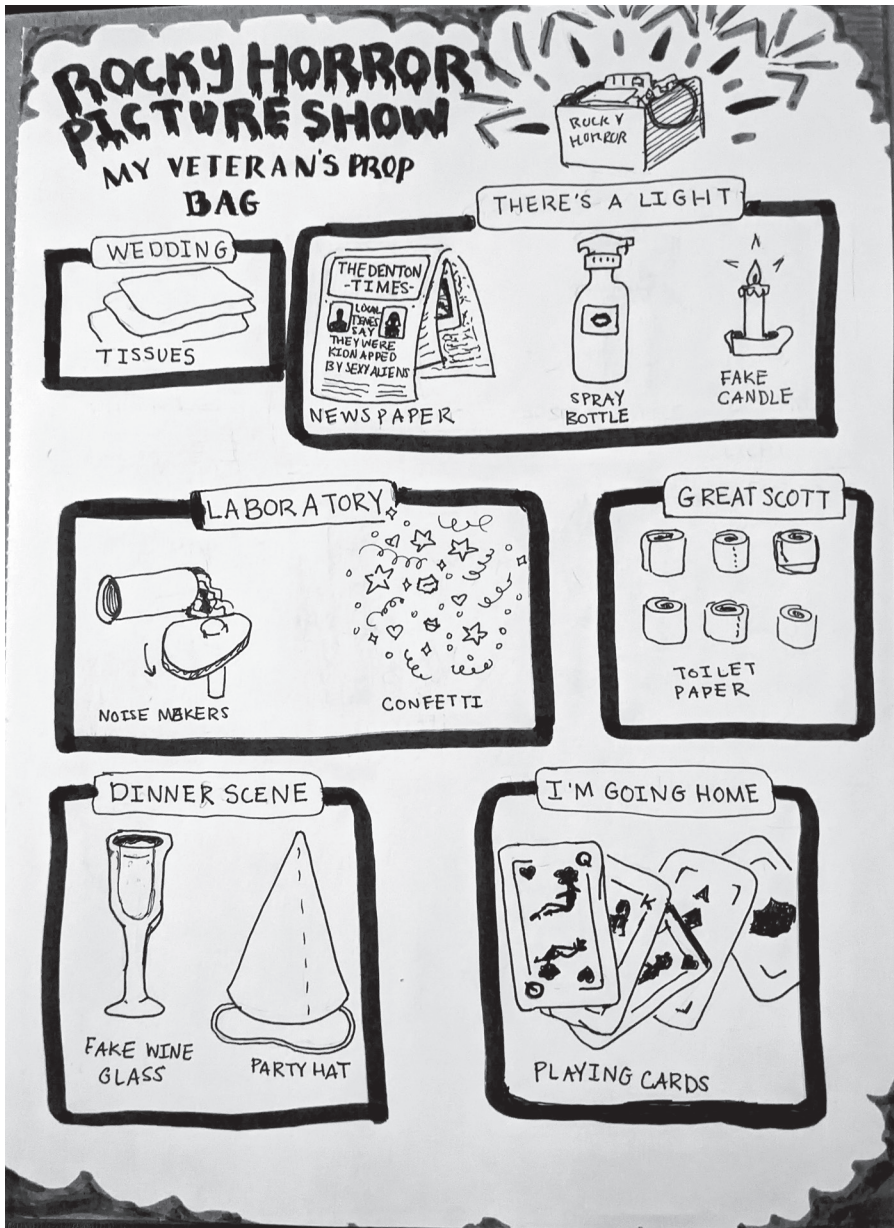 ROCKY HORROR
PICTURE SHOW
MY VETERAN'S PROP
BAG
ROCKY
HORROR
WEDDING
TISSUES
THERE'S A LIGHT
THE DENTON
-TIMES-
LOCAL
TEENS
SAY
THEY WERE
KIDNAPPED
BY SEXY ALIENS
NEWSPAPER
SPRAY
BOTTLE
FAKE
CANDLE
LABORATORY
NOISE MAKERS
CONFETTI
GREAT SCOTT
TOILET
PAPER
DINNER SCENE
FAKE WINE
GLASS
PARTY HAT
I'M GOING HOME
Q
K
A
Q
PLAYING CARDS